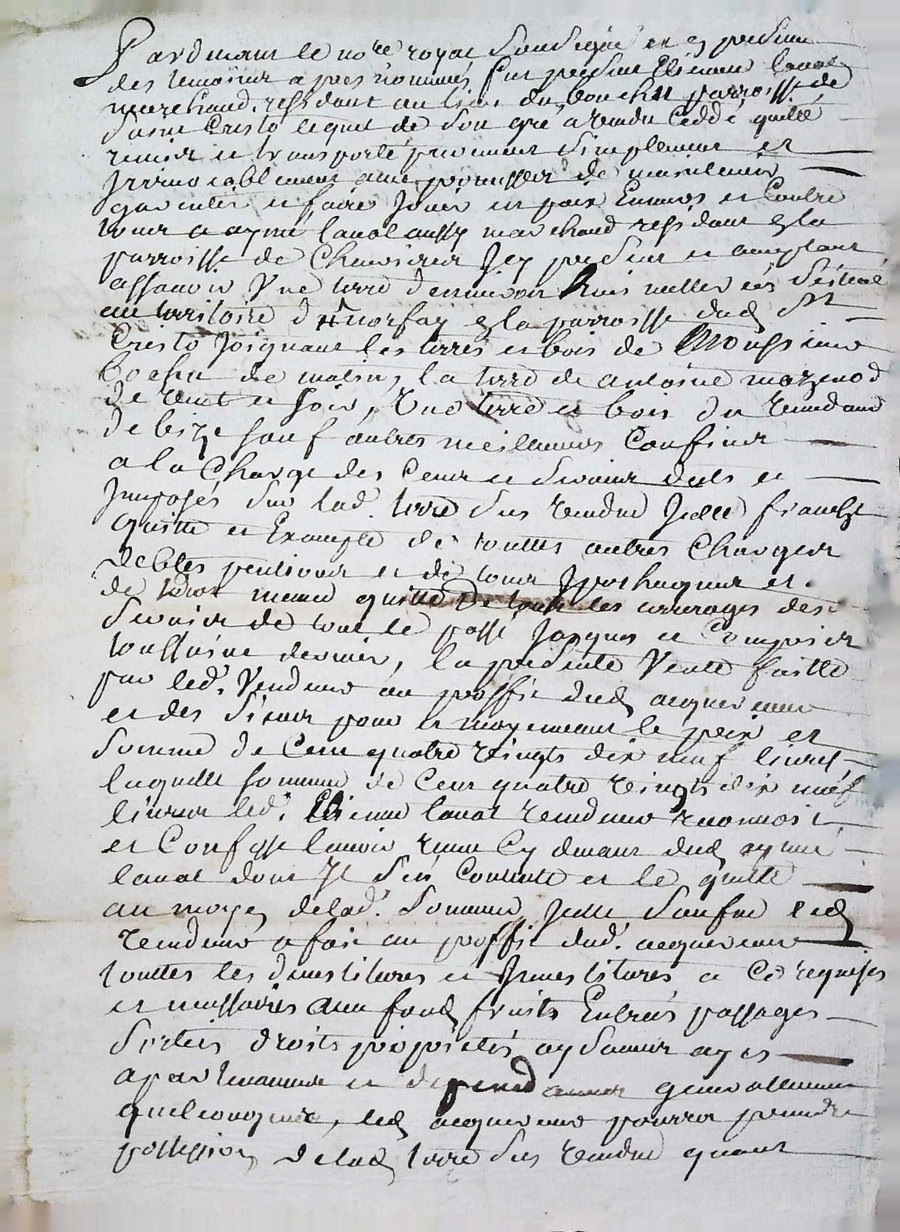 Pardevant le nore royal soussigné et en presence
des temoins apres nommés fut present Etienne Laval
marchand residant au lieu du bouchet parroisse de
Saint Cristo lequel de son gré a vendu ceddé quitté
remis et transporté purement simplement et
jrrevocablement avec promesse de maintenir
garentir et faire jouir en paix Envers et Contre
tous a aymé laval aussy marchand residant en la
parroisse de jcy present et acceptant
assavoir Une terre d'environ trois metterées située
au territoire de en la parroisse dud. St
Cristo joignant les terres et bois de Monssieur
de matin, la terre de antoine mazenod
de vent et soir, Une terre et bois du vendeur
de bize sauf autres meilleurs Confins
a la Charge des Cens et servis deubs et
jmposés sur lad. terre sus vendue jcelle franche
quitte et Exempte de touttes autres Charges
debtes pentions et de tous jpotheques et
de tous mesme quitte de tous les arrerages des
servis de tout le passé jusques et Compris
toussaint dernier, la presente Vente faitte
par led. Vendeur au proffit dud. acquereur
et des siens pour et moyennant le prix et
somme de Cent quatre vingts dix neuf livres
laquelle somme de Cent quatre vingts dix neuf
livres led. Etienne laval vendeur reconnoit
et Confesse lavoir receu Cy devant dud. aymé
laval dont Jl s'en Contente et le quitte
au moyen de lad. somme jcelle s'est led.
vendeur a fait au proffit dud. acquereur
touttes les devestitures et jnvestitures a Ce requises
et necessaires avec fonds fruits Entrées passages
sorties droits proprietés aysances
apartenances et dependances generallement
quelconques, led. acquereur pourra prendre
possession de lad. terre sus vendue quant